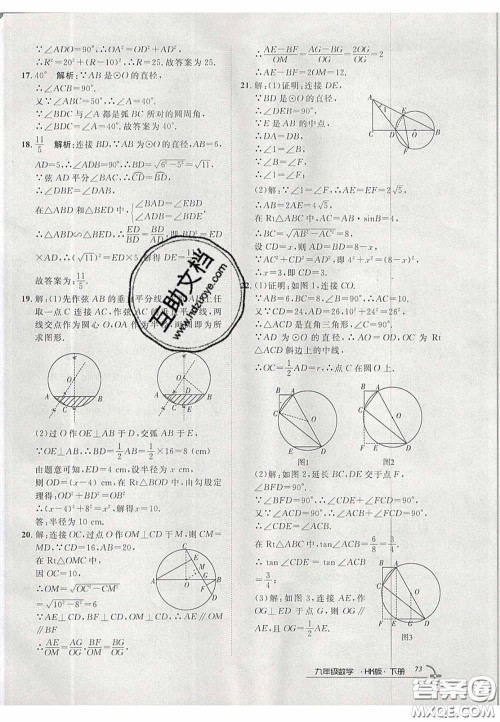 ∵∠ADO=90°,∴OA²=OD²+AD².
∴R²=20²+(R-10)².∴R=25.故答案为25.
17.40° 解析:∵AB是⊙O的直径,
∴∠ACB=90°.
又∵∠BAC=50°,∴∠ABC=40°.
∵∠BDC与∠ABC都是弧BC所对的圆周角,
∴∠BDC=∠ABC=40°.故答案为40°.
18. 11/5 解析:连接BD,∵AB为⊙O的直径,AB=6,
AD=5,∴∠ADB=90°.∴BD=√(6²-5²)=√11.
∵弦AD平分∠BAC,∴CD=BD.
∴∠DBE=∠DAB.
在△ABD和△BED中,{∠BAD=∠EBD ∠ADB=∠BDE
∴△ABD∽△BED.∴ED/BD=BD/AD,
即(√11)²=ED×5.解得DE=11/5.
故答案为:11/5.
19.解:(1)先作弦AB的垂直平分线
取一点C连接AC,作弦AC的
线交点作为圆心O,OA作为
求图形.
(2)过O作OE⊥AB于D,交弧AB于E,
连接OB.∵OE⊥AB,
∴BD=1/2AB=1/2×16=8(cm).
由题意可知,ED=4 cm,设半径为x cm,
则OD=(x-4)cm,在Rt△OBD中,由勾股定理得OD²+BD²=OB²,
∴(x-4)²+8²=x².解得x=10.
答:半径为10 cm.
20.解:连接OC,过点O作OM⊥CD于M,
CM=MD.∵CD=16,
∴CM=8.
在Rt△OMC中,
因OC=10,
∴OM=√(OC²-CM²)
=√(10²-8²)=6
∵AE⊥CD,BF⊥CD,OM⊥CD,
∴AE∥OM∥BF.
∴AE/OM=AG/OG,BF/OM=BG/OG.
∴(AE-BF)/OM=(AG-BG)/OG=2OG/OG=2
∴AE-BF=2OM=12.
21.解:(1)证明:连接DE,
∵BD是⊙O的直径,
∴∠DEB=90°.
∵E是AB的中点,
∴DA=DB.
∴∠1=∠B.
∵∠B=∠F,
∴∠1=∠F.
(2)解:∵∠1=∠F,∴AE=EF=2√5.
∴AB=2AE=4√5.
在Rt△ABC中,AC=AB·sinB=4,
∴BC=√(AB²-AC²)=8.
设CD=x,则AD=BD=8-x.
∵AC²+CD²=AD²,即4²+x²=(8-x)²,
∴x=3,即CD=3.
22.(1)证明:如图1,连接CO.
∵AB=6,BC=8,∠B=90°,
∴AC=10.
又∵CD=24,AD=26,10²+24²=26²,
∴△ACD是直角三角形,∠ACD=90°.
∵AD是⊙O的直径,∴AO=OD.∴OC为Rt△ACD斜边上的中线.
∴OC=1/2AD=r.∴点C在圆O上.
图1
图2
(2)解:如图2,延长BC,DE交于点F,
∠BFD=90°.
∵∠BFD=90°,
∴∠CDE+∠FCD=90°.
又∵∠ACD=90°,
∴∠ACB+∠FCD=90°.
∴∠CDE=∠ACB.
在Rt△ABC中,tan∠ACB=6/8=3/4,
∴tan∠CDE=tan∠ACB=3/4.
(3)解:如图3,连接AE,作OG⊥ED于点G,则OG∥AE,且OG=1/2AE.
图3
互助文档
www.hdzuoye.com
九年级数学·HK版·下册
73